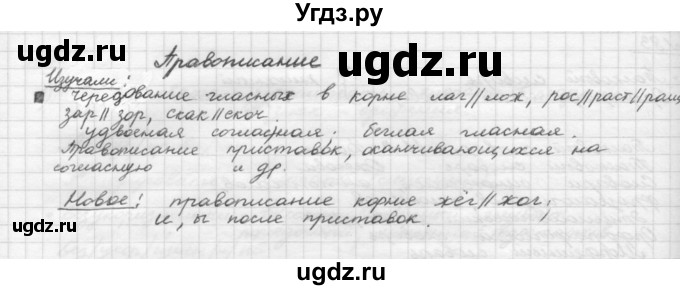 Угдз.ру
Правописание
угдз.ru
Изучали:
чередование гласных в корне лаг//лох, рос//раст//ращ
зар//зор, скак//скоч.
угдз.ru угдз.ru
удвоеная согласная; беглая гласная.
Правописание приставок, оканчивающихся на
согласную и др.
Новое: правописание корне жёг//жог;
и, ы после приставок.
угдз.ru угдз.ru
угдз.ru